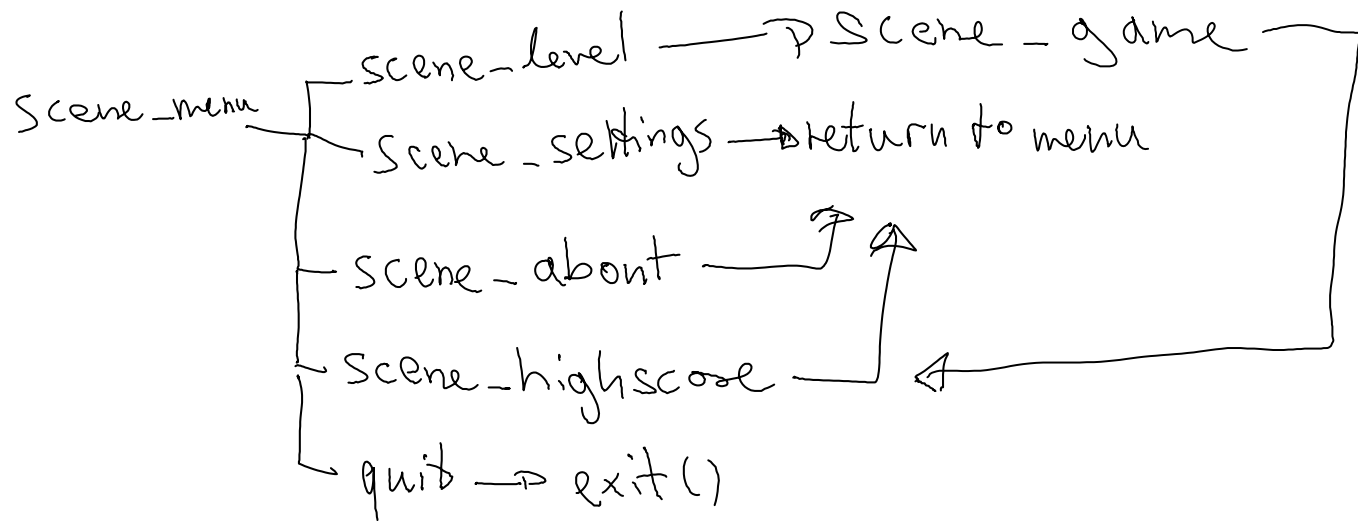 scene_level scene_game
scene_menu
scene_settings return to menu
scene_about
scene_highscore
quit exit()